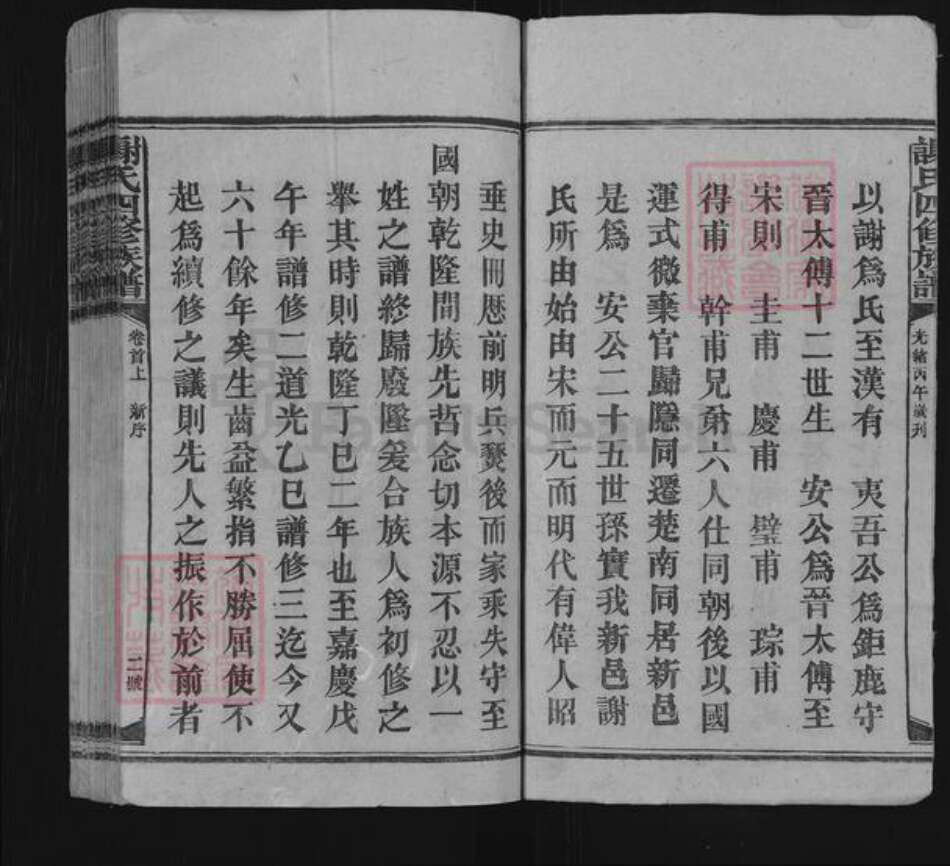 謝氏四修族譜
光緒丙午歲刊
以謝爲氏至漢有 夷吾公爲鉅鹿守
晉太傅十二世生 安公爲晉太傅至
宋則 圭甫 慶甫 璧甫 琮甫
得甫 幹甫兄弟六人仕同朝後以國
運式微棄官歸隱同遷楚南同居新邑
是爲 安公二十五世孫實我新邑謝
氏所由始由宋而元而明代有偉人昭
垂史冊歷前明兵燹後而家乘失守至
國朝乾隆間族先哲念切本源不忍以一
姓之譜終歸廢墜爰合族人爲初修之
舉其時則乾隆丁巳二年也至嘉慶戊
午年譜修二道光乙巳譜修三迄今又
六十餘年矣生齒益繁指不勝屈使不
起爲續修之議則先人之振作於前者
謝氏四修族譜
卷首上 新序
二號